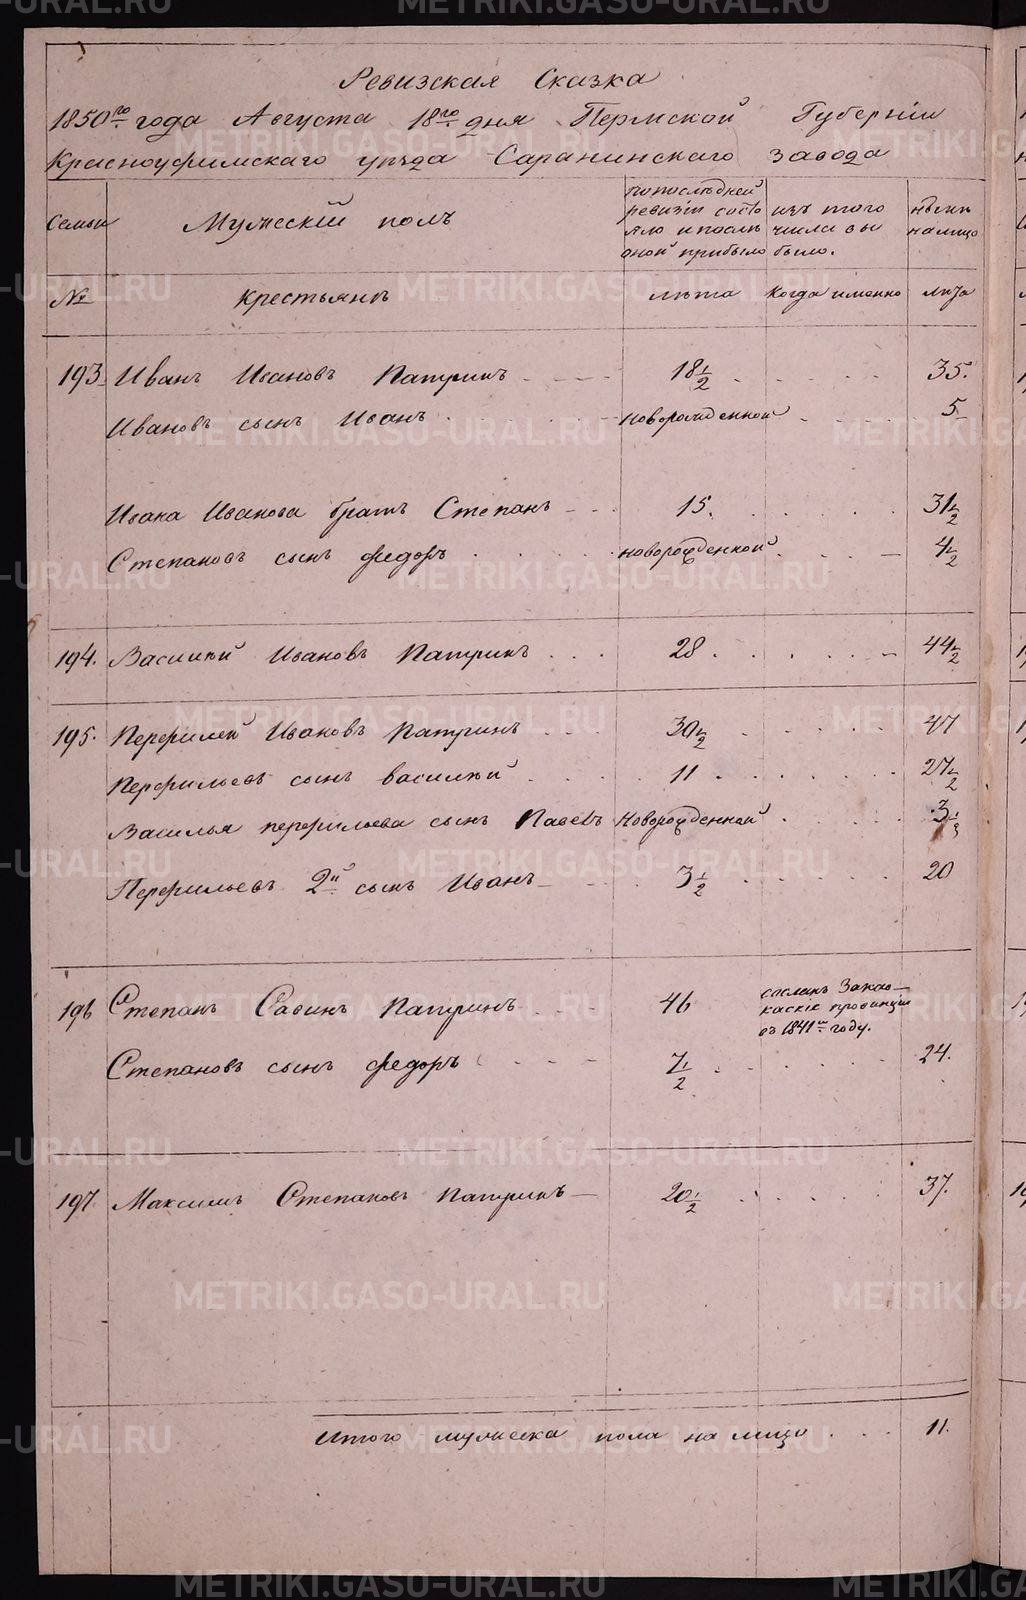 Ревизская Сказка
1850го года Августа 18го дня Пермской Губерніи
Красноуфимскаго уѣзда Саранинскаго завода
Семьи
Мужескій полъ
по последней ревизіи состояло и после оной прибыло
изъ того числа выбыло.
ныне на лицо
№
Крестьяне
лета
Когда именно
лета
193 Иванъ Ивановъ Патринъ 18 1/2 35.
Ивановъ сынъ Иванъ новорожденной 5
Ивана Иванова братъ Степанъ 15. 31 1/2
Степановъ сынъ Федоръ новорожденной 4 1/2
194. Василий Ивановъ Патринъ 28 44 1/2
195. Перфилей Ивановъ Патринъ 30 1/2 47
Перфильевъ сынъ Василий 11 27 1/2
Василья Перфильева сынъ Павелъ Новорожденной 3
Перфильевъ 2й сынъ Иванъ 3 1/2 20
196 Степанъ Савинъ Патринъ 46 сосланъ Закавкаскіе провинціи въ 1841м году.
Степановъ сынъ Федоръ 7 1/2 24.
197. Максимъ Степановъ Патринъ 20 1/2 37.
Итого мужеска пола на лицо 11.
METRIKI.GASO-URAL.RU